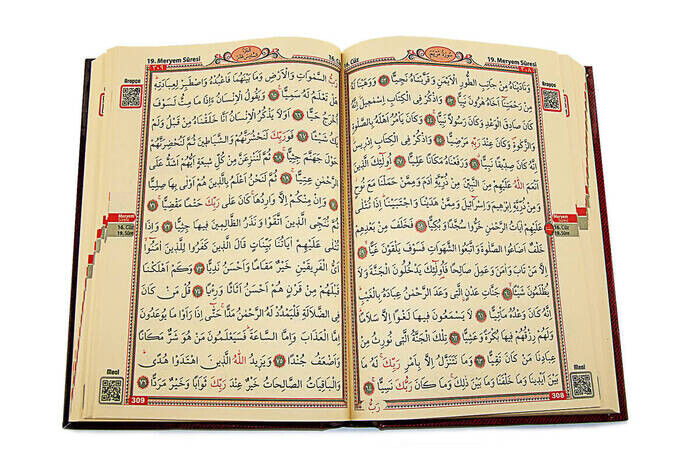 19. Meryem Sûresi
16. Cüz
سُورَةُ مَرْيَمَ
٣٠٨
Arapça
وَنَادَيْنَاهُ مِنْ جَانِبِ الطُّورِ الْاَيْمَنِ وَقَرَّبْنَاهُ نَجِيًّا ﴿٥٢﴾ وَوَهَبْنَا لَهُ
مِنْ رَحْمَتِنَا اَخَاهُ هٰرُونَ نَبِيًّا ﴿٥٣﴾ وَاذْكُرْ فِي الْكِتَابِ اِسْمٰعِيلَ اِنَّهُ
كَانَ صَادِقَ الْوَعْدِ وَكَانَ رَسُولًا نَبِيًّا ﴿٥٤﴾ وَكَانَ يَأْمُرُ اَهْلَهُ بِالصَّلٰوةِ
وَالزَّكٰوةِ وَكَانَ عِنْدَ رَبِّهِ مَرْضِيًّا ﴿٥٥﴾ وَاذْكُرْ فِي الْكِتَابِ اِدْرِيسَ
اِنَّهُ كَانَ صِدِّيقًا نَبِيًّا ﴿٥٦﴾ وَرَفَعْنَاهُ مَكَانًا عَلِيًّا ﴿٥٧﴾ اُولٰئِكَ الَّذِينَ
اَنْعَمَ اللّٰهُ عَلَيْهِمْ مِنَ النَّبِيِّنَ مِنْ ذُرِّيَّةِ اٰدَمَ وَمِمَّنْ حَمَلْنَا مَعَ نُوحٍ
وَمِنْ ذُرِّيَّةِ اِبْرٰهِيمَ وَاِسْرَائِيلَ وَمِمَّنْ هَدَيْنَا وَاجْتَبَيْنَا اِذَا تُتْلٰى
عَلَيْهِمْ اٰيَاتُ الرَّحْمٰنِ خَرُّوا سُجَّدًا وَبُكِيًّا ﴿٥٨﴾ فَخَلَفَ مِنْ بَعْدِهِمْ
خَلْفٌ اَضَاعُوا الصَّلٰوةَ وَاتَّبَعُوا الشَّهَوَاتِ فَسَوْفَ يَلْقَوْنَ غَيًّا ﴿٥٩﴾
اِلَّا مَنْ تَابَ وَاٰمَنَ وَعَمِلَ صَالِحًا فَاُولٰئِكَ يَدْخُلُونَ الْجَنَّةَ وَلَا
يُظْلَمُونَ شَيْئًا ﴿٦٠﴾ جَنَّاتِ عَدْنٍ الَّتِي وَعَدَ الرَّحْمٰنُ عِبَادَهُ بِالْغَيْبِ
اِنَّهُ كَانَ وَعْدُهُ مَأْتِيًّا ﴿٦١﴾ لَا يَسْمَعُونَ فِيهَا لَغْوًا اِلَّا سَلَامًا
وَلَهُمْ رِزْقُهُمْ فِيهَا بُكْرَةً وَعَشِيًّا ﴿٦٢﴾ تِلْكَ الْجَنَّةُ الَّتِي نُورِثُ مِنْ
عِبَادِنَا مَنْ كَانَ تَقِيًّا ﴿٦٣﴾ وَمَا نَتَنَزَّلُ اِلَّا بِاَمْرِ رَبِّكَ لَهُ مَا
بَيْنَ اَيْدِينَا وَمَا خَلْفَنَا وَمَا بَيْنَ ذٰلِكَ وَمَا كَانَ رَبُّكَ نَسِيًّا ﴿٦٤﴾
رَبُّ
Meryem
Sûresi
16. Cüz
19. Sûre
Meal
308
19. Meryem Sûresi
16.
٣٠٩
Arapça
رَبُّ السَّمٰوَاتِ وَالْاَرْضِ وَمَا بَيْنَهُمَا فَاعْبُدْهُ وَاصْطَبِرْ لِعِبَادَتِهِ
هَلْ تَعْلَمُ لَهُ سَمِيًّا ﴿٦٥﴾ وَيَقُولُ الْاِنْسَانُ ءَاِذَا مَا مِتُّ لَسَوْفَ
اُخْرَجُ حَيًّا ﴿٦٦﴾ اَوَلَا يَذْكُرُ الْاِنْسَانُ اَنَّا خَلَقْنَاهُ مِنْ قَبْلُ وَلَمْ
يَكُ شَيْئًا ﴿٦٧﴾ فَوَرَبِّكَ لَنَحْشُرَنَّهُمْ وَالشَّيَاطِينَ ثُمَّ لَنُحْضِرَنَّهُمْ
حَوْلَ جَهَنَّمَ جِثِيًّا ﴿٦٨﴾ ثُمَّ لَنَنْزِعَنَّ مِنْ كُلِّ شِيعَةٍ اَيُّهُمْ اَشَدُّ عَلَى
الرَّحْمٰنِ عِتِيًّا ﴿٦٩﴾ ثُمَّ لَنَحْنُ اَعْلَمُ بِالَّذِينَ هُمْ اَوْلٰى بِهَا صِلِيًّا
﴿٧٠﴾ وَاِنْ مِنْكُمْ اِلَّا وَارِدُهَا كَانَ عَلٰى رَبِّكَ حَتْمًا مَقْضِيًّا ﴿٧١﴾
ثُمَّ نُنَجِّي الَّذِينَ اتَّقَوْا وَنَذَرُ الظَّالِمِينَ فِيهَا جِثِيًّا ﴿٧٢﴾ وَاِذَا
تُتْلٰى عَلَيْهِمْ اٰيَاتُنَا بَيِّنَاتٍ قَالَ الَّذِينَ كَفَرُوا لِلَّذِينَ اٰمَنُوا
اَيُّ الْفَرِيقَيْنِ خَيْرٌ مَقَامًا وَاَحْسَنُ نَدِيًّا ﴿٧٣﴾ وَكَمْ اَهْلَكْنَا
قَبْلَهُمْ مِنْ قَرْنٍ هُمْ اَحْسَنُ اَثَاثًا وَرِءْيًا ﴿٧٤﴾ قُلْ مَنْ كَانَ
فِي الضَّلَالَةِ فَلْيَمْدُدْ لَهُ الرَّحْمٰنُ مَدًّا حَتّٰى اِذَا رَاَوْا مَا يُوعَدُونَ
اِمَّا الْعَذَابَ وَاِمَّا السَّاعَةَ فَسَيَعْلَمُونَ مَنْ هُوَ شَرٌّ مَكَانًا
وَاَضْعَفُ جُنْدًا ﴿٧٥﴾ وَيَزِيدُ اللّٰهُ الَّذِينَ اهْتَدَوْا هُدًى
وَالْبَاقِيَاتُ الصَّالِحَاتُ خَيْرٌ عِنْدَ رَبِّكَ ثَوَابًا وَخَيْرٌ مَرَدًّا ﴿٧٦﴾
Meryem
Sûresi
16. Cüz
19. Sûre
Meal
309